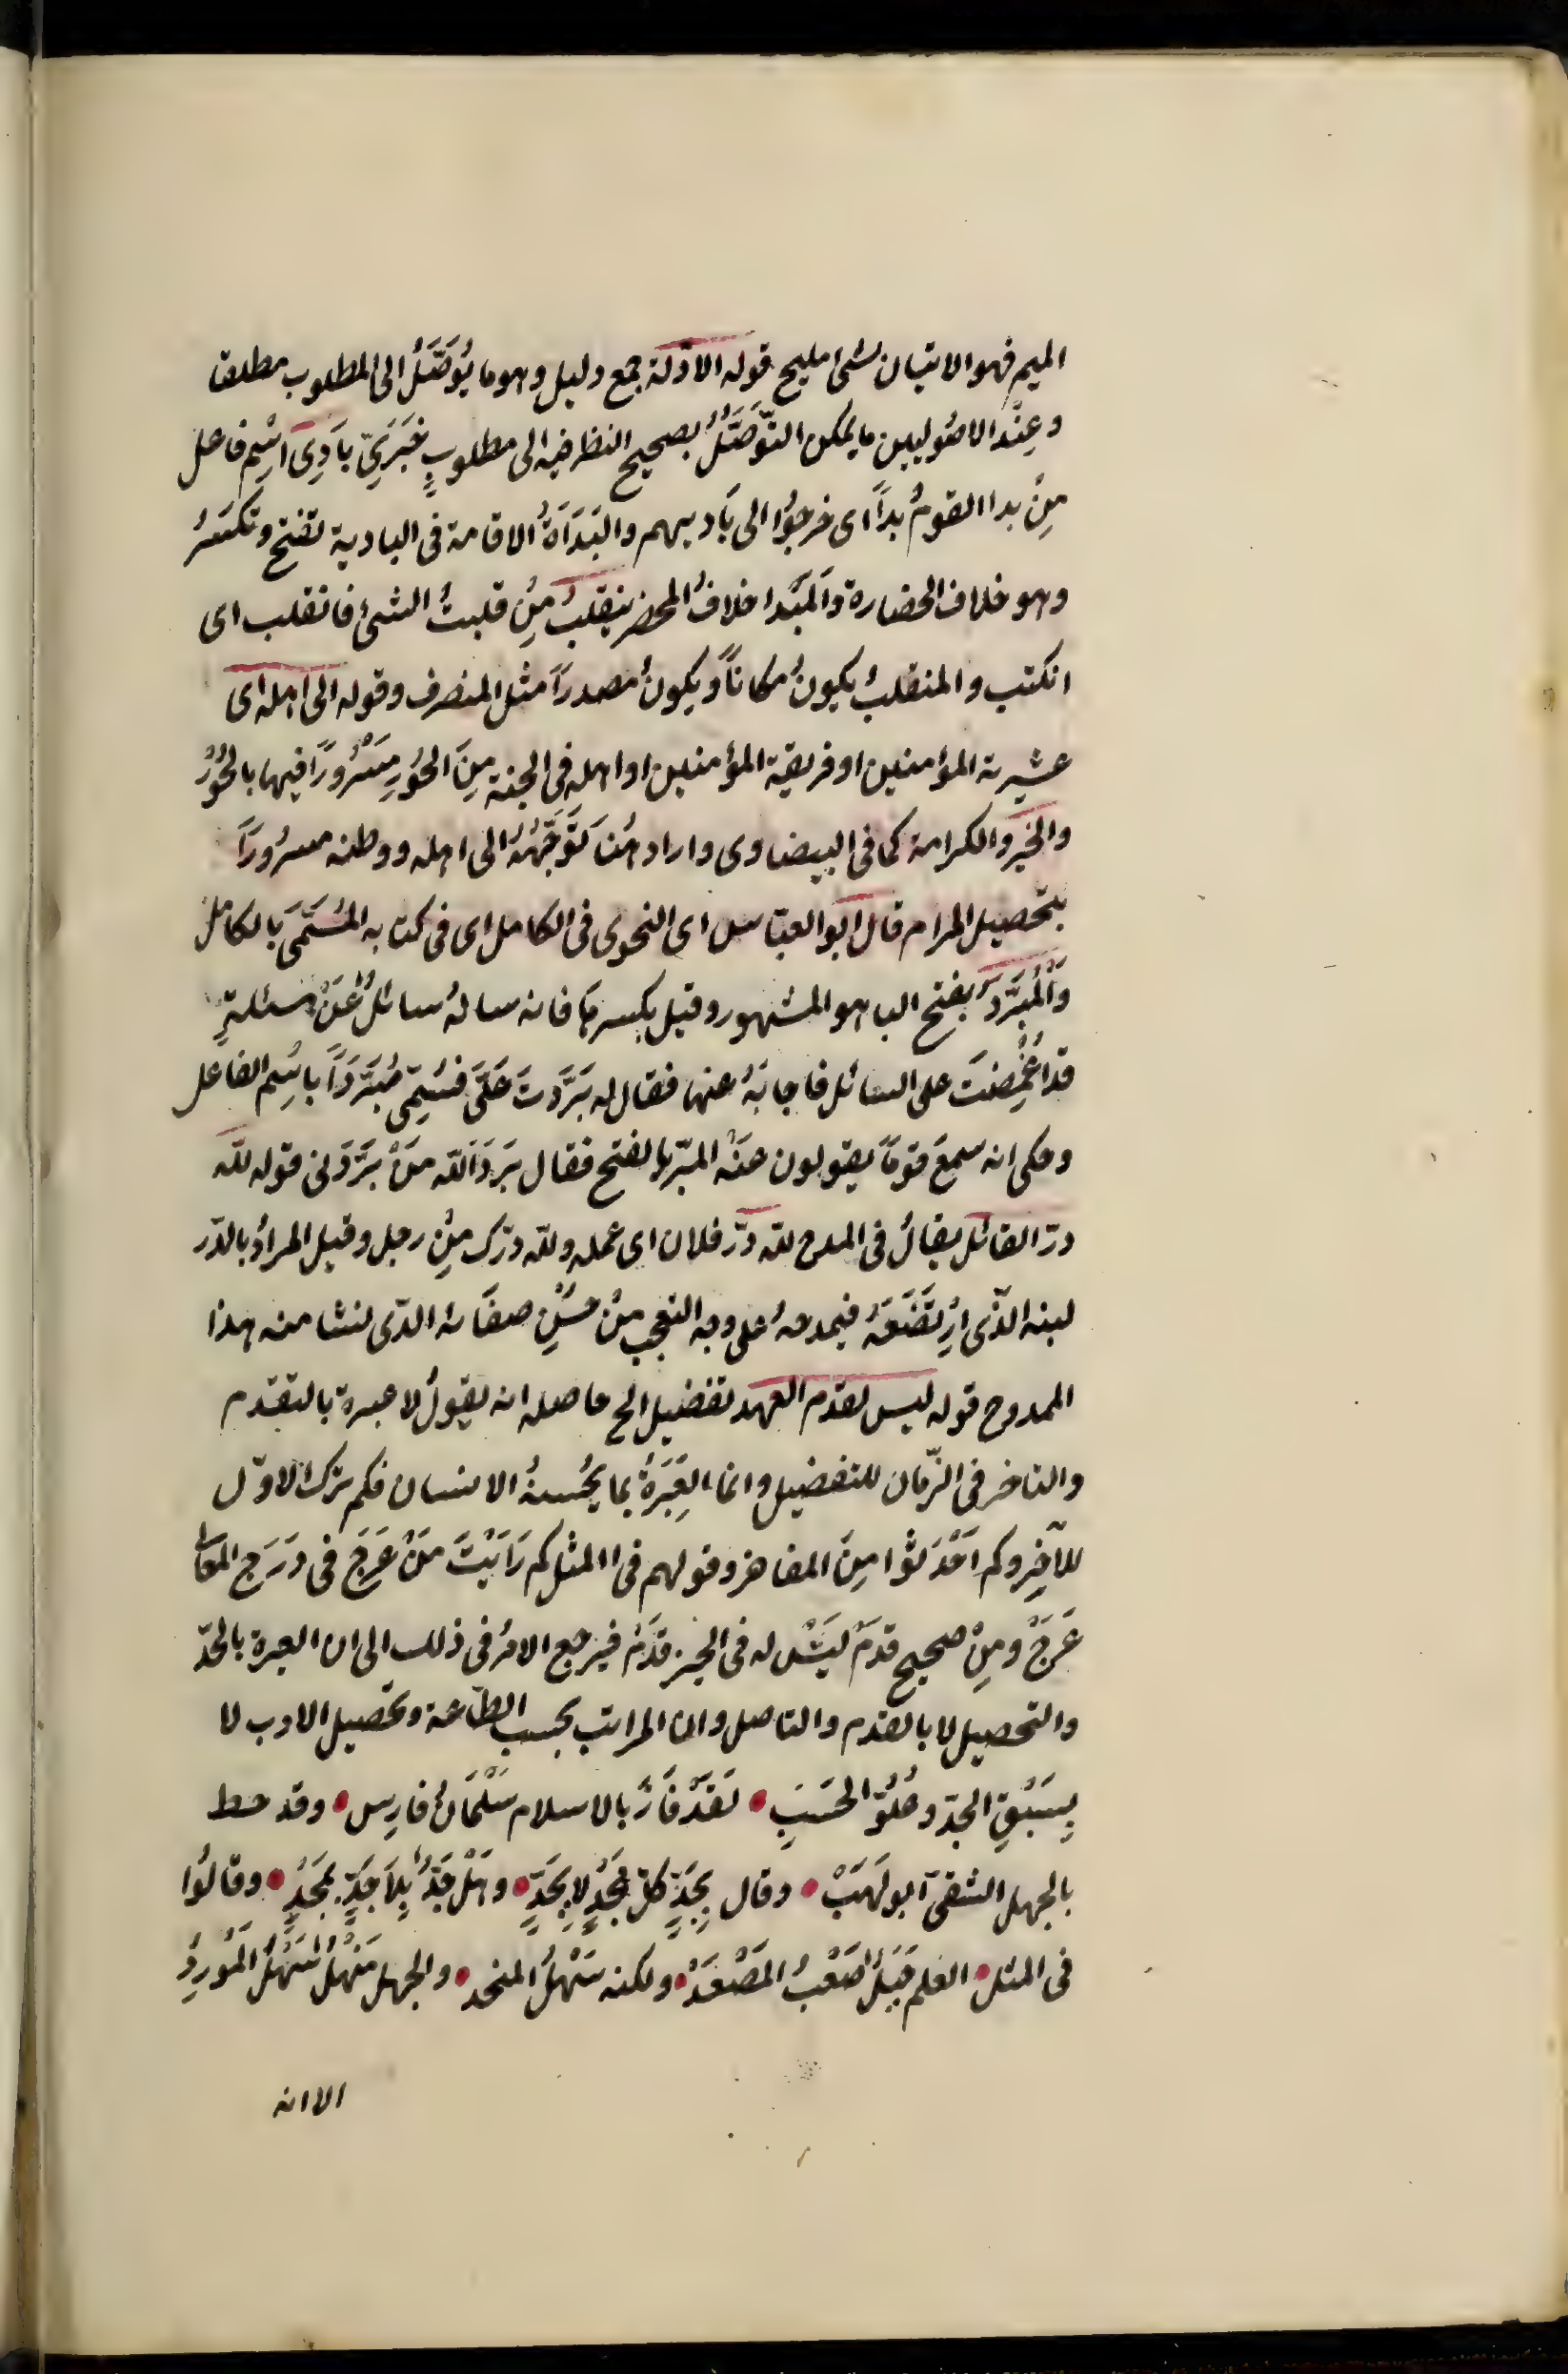 الميم فهو الاتيان بشئ مليح قوله الادلة جمع دليل وهو ما يُوَصَّلُ الى المطلوب مطلقا
وعِنْد الاصُوليين ما يمكن التَّوصَّلُ بصحيح النظر فيه الى مطلوبٍ خبَرَيِّ بَادِى اسْمِ فاعل
مِنْ بدا القومُ بداً اى خرجُوا الى بَاديهم والبَدَاَةُ الاقامة فى البادية تفتح وتكسَرُ
وهو خلاف الحضارة وَالمَبْدا خلافُ المحضر ينقلبُ مِنْ قلبتُ الشئ فانقلب اى
انكتب والمنقلبُ يكونُ مكاناً ويكونُ مصدراً مثل المنصرف وقوله الى اهله اى
عشيرته المؤمنين او فريقه المؤمنين او اهله فى الجنة مِنَ الحُورِ مسْرُورًا فيها بالحُوْرُ
والخَيْر والكرامة كما فى البيضاوى واراد هُنا تَوَجَّهُهُ الى اهله ووطنه مسرُوراً
بتحصيل المرام قال ابو العبّاس اى النحوى فى الكامل اى فى كتابه المُسَمَّى بَالكامل
وَالْمُبَرَّدَ بفتح البا هو المشهور وقيل بكسرها فانه ساله سائلٌ عَنْ مسئلةٍ
قد اُغْمِضَتْ على السائل فاجابَهُ عنها فقال له بَرَّدتَ عَلَىَّ فسُمِّى مُبَرِّدَاً باسْمِ الفاعل
وحكى انه سمِعَ قومًا يقولون عنْه المبرّد بالفتح فقال بَرَدَ اللّه مَنْ بَرَّدَنى قوله للّه
درّ القائل يقالُ فى المدح للّه دَرّ فلان اى عمله وللّه درّك مِنْ رجل وقيل المرادُ بالدّر
لبنه الذّى ارْتَضَعَهُ فيمدحهُ على وجه التعجب من حُسْنِ صفاته الذّى نشا منه هذا
الممدوح قوله ليس لقدم العهد تفضيل الخ حاصله انه يقولُ لا عبرة بالتقدم
والتاخر فى الزّمان للتفضيل وانما العِبْرَةُ بما يُحْسنهُ الانسان فكم ترك الاوّل
للآخِر وكم احْدَثوا مِنَ المفاخر وقولهم فى المثل كم رَايْتَ مَنْ عَرَجَ فى دَرَجِ المعالى
عَرَجْ ومِنْ صحيح قدَمْ ليْسَ له فى الخير قَدَمْ فيرجع الامرُ فى ذلك الى ان العبرة بالجدّ
والتحصيل لا بالقدم والتاصل وانما المراتب بحسب الطّاعة وتحصيل الادب لا
بِسَبْقِ الجدّ وعُلُوّ الحَسَبِ • لَقدْ فَازَ بالاسلام سَلْمَانُ فارِس • وقد حط
بالجهل الشقىّ ابو لَهَبْ • وقال بِجَدٍّ كلّ مَجْدٍ لا بِجَدٍّ • وهَلْ جَدٌّ بِلا جَدٍّ بمَجْدٍ • وقالُوا
فى المثل • العلم جَبَلٌ صَعْبُ المَصْعَدْ • ولكنه سَهْلُ المنحد • والجهل مَنْهلٌ سَهْلُ المَوْرِدُ
الا انه